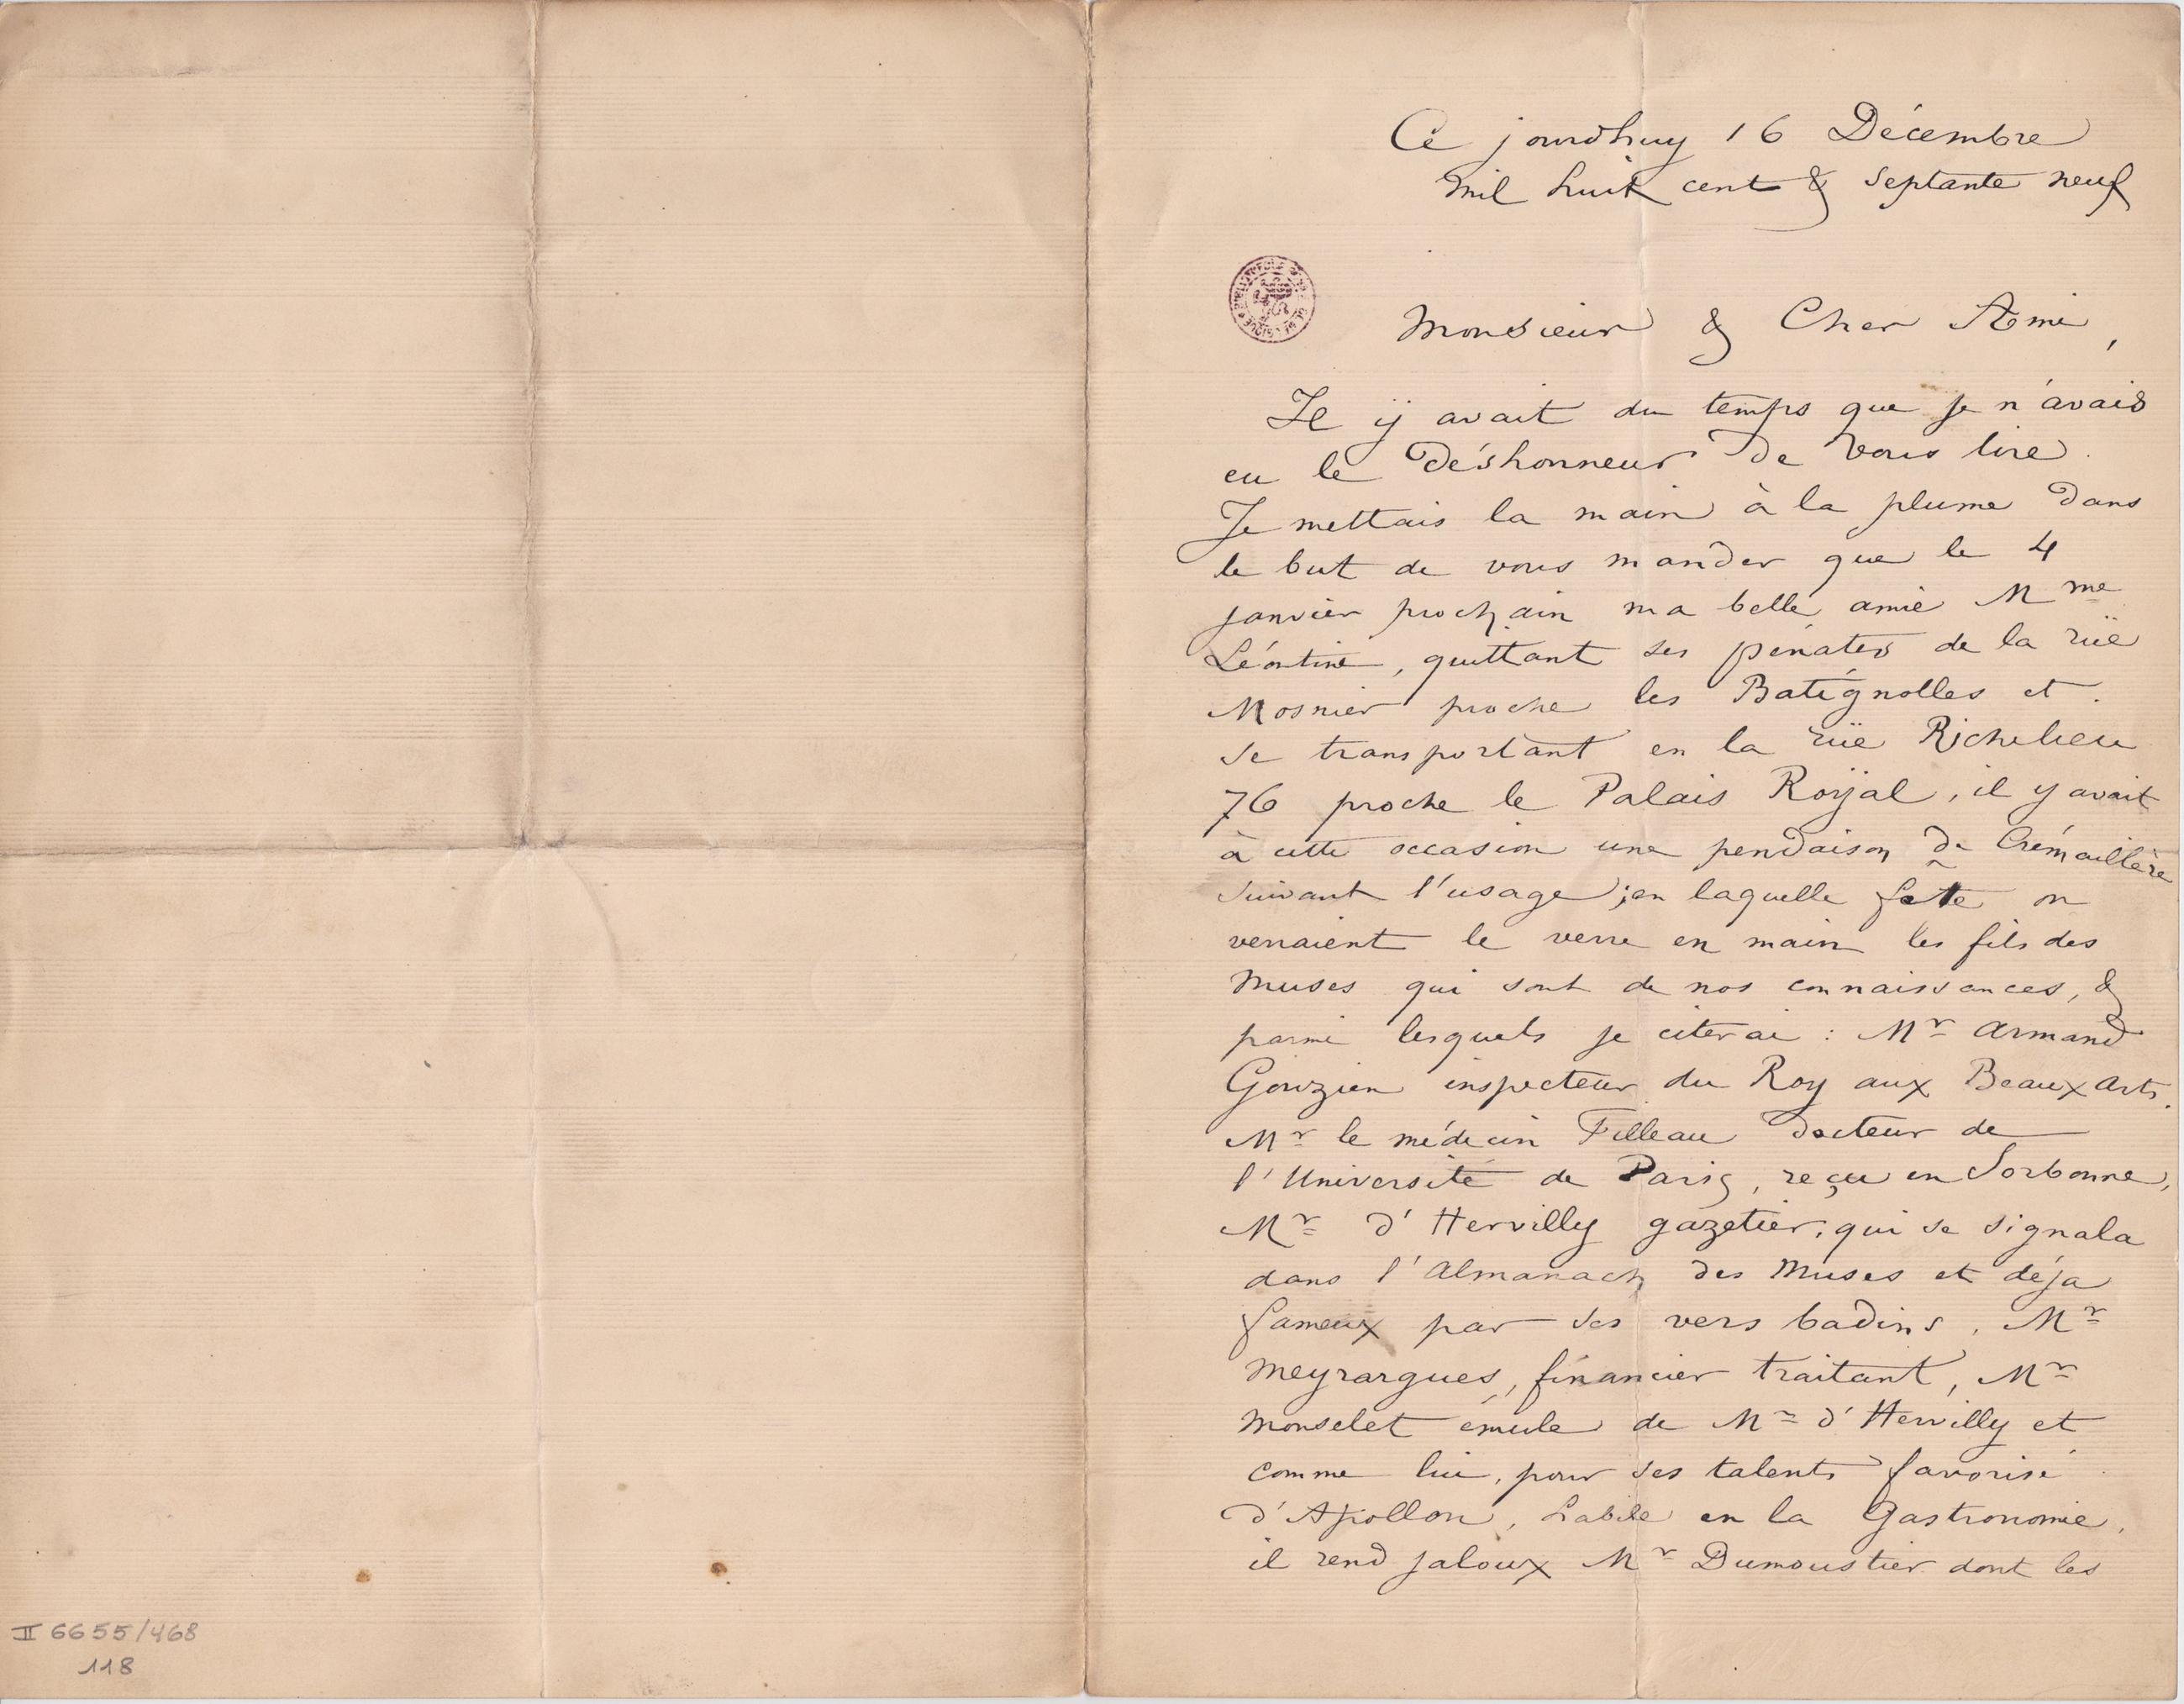 Ce jourdhuy 16 Décembre
mil huit cent & septante neuf
Monsieur & Cher Ami,
Il ÿ avait du temps que je n'avais
eu le déshonneur de vous lire.
Je mettais la main à la plume dans
le but de vous mander que le 4
janvier prochain ma belle amie Mme
Léontine, quittant ses pénates de la rüe
Mosnier proche les Batignolles et
se transportant en la rüe Richelieu
76 proche le Palais Roÿal, il y avait
à cette occasion une pendaison de Crémaillère
suivant l'usage ; en laquelle fête on
verraient le verre en main les fils des
Muses qui sont de nos connaissances, &
parmi lesquels je citerai : Mr Armand
Gouzien inspecteur du Roy aux Beaux arts.
Mr le médecin Filleau docteur de
l'Université de Paris, reçu en Sorbonne,
Mr d'Hervilly gazetier, qui se signala
dans l'Almanach des Muses et déja
fameux par ses vers badins, Mr
Meyrargues, financier traitant, Mr
Monselet émule de Mr d'Hervilly et
comme lui, pour ses talents favorisé
d'Apollon, habile en la Gastronomie,
il rend jaloux Mr Dumoustier dont les
II 6655/468
118